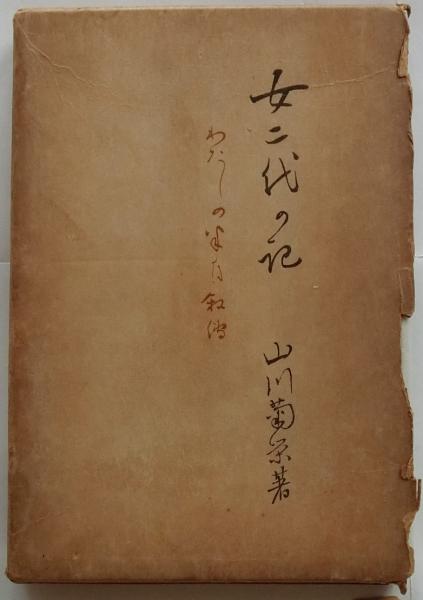 女二代の記
山川菊栄著
わたしの半自叙傳